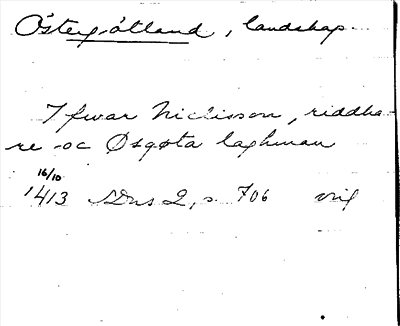 Östergötland, landskap.
Ifwar Niclisson, riddha-
re oc Øsgøta laghman
16/10
1413 SDns 2, s. 706 orig